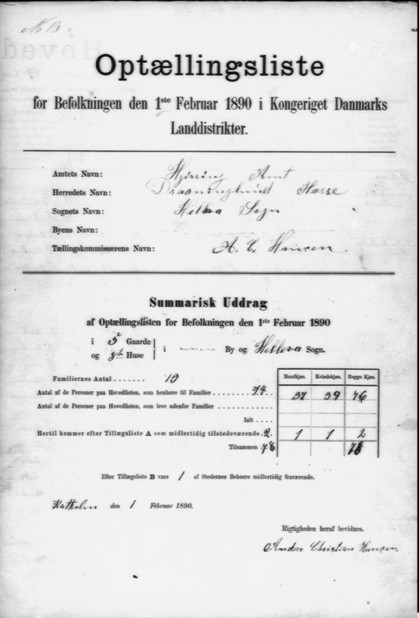 No 13.
Optællingsliste
for Befolkningen den 1ste Februar 1890 i Kongeriget Danmarks
Landdistrikter.
Amtets Navn: Hjørring Amt
Herredets Navn: Herre
Sognets Navn: Sogn
Byens Navn:
Tællingskommissærens Navn: A. C. Hansen
Summarisk Uddrag
af Optællingslisten for Befolkningen den 1ste Februar 1890
i 5 Gaarde
og Huse
i By og Sogn.
Mandkjøn. Kvindekjøn. Begge Kjøn.
Familiernes Antal 13
Antal af de Personer paa Hovedlisten, som henhøre til Familier 74 37 39 76
Antal af de Personer paa Hovedlisten, som leve udenfor Familier
Ialt
Hertil kommer efter Tillægsliste A som midlertidig tilstedeværende 2 1 1 2
Tilsammen 76 78
Efter Tillægsliste B vare 1 af Stedernes Beboere midlertidig fraværende.
den 1 Februar 1890.
Rigtigheden heraf bevidnes.
Anders Christian Hansen